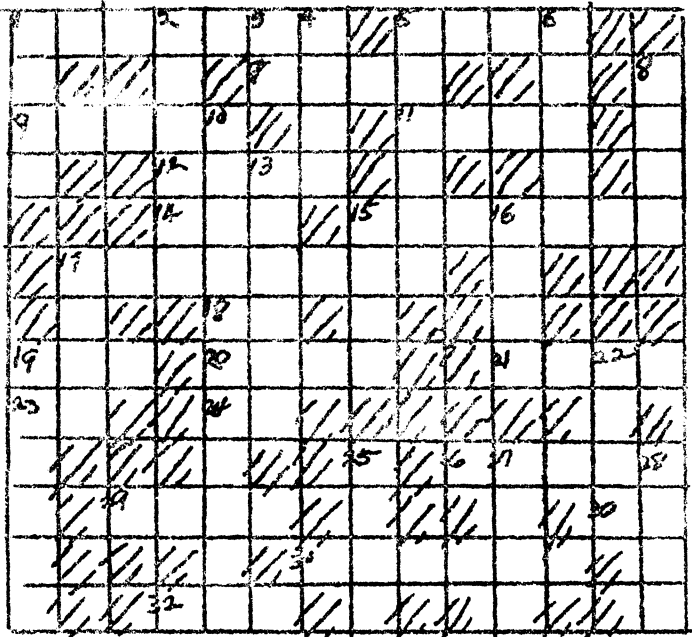 1 2 3 4 5 6
7 8
9 10 11
12 13
14 15 16
17
18
19 20 21 22
23 24
25 26 27 28
29 30
31
32